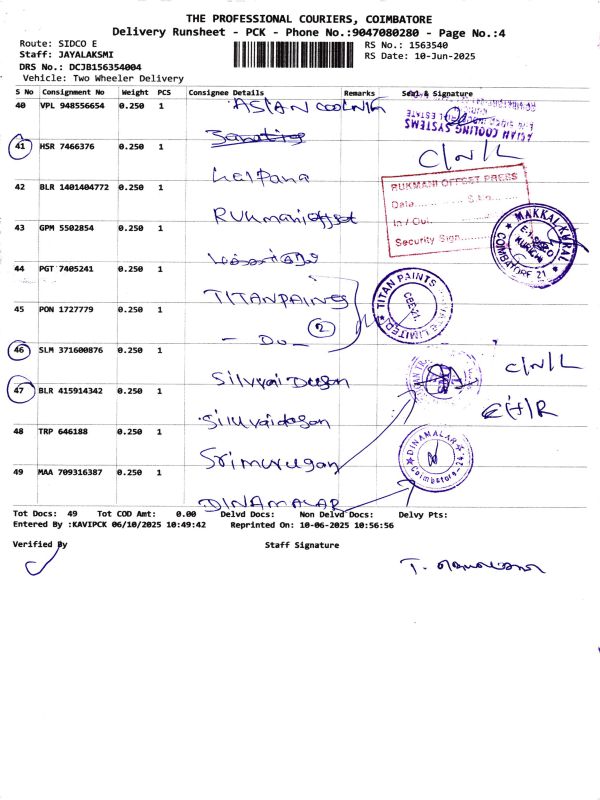 THE PROFESSIONAL COURIERS, COIMBATORE
Delivery Runsheet - PCK - Phone No.:9047080280 - Page No.:4
Route: SIDCO E
RS No.: 1563540
Staff: JAYALAKSMI
RS Date: 10-Jun-2025
DRS No.: DCJB156354004
Vehicle: Two Wheeler Delivery
S No Consignment No Weight PCS Consignee Details Remarks Seal & Signature
40 VPL 948556654 0.250 1 ASIAN COOLING
ASIAN COOLING SYSTEMS
41 HSR 7466376 0.250 1
C/N/L
42 BLR 1401404772 0.250 1 Kalpana
RUKMANI OFFSET PRESS
Date
In / Out
Security Sign
RUKmani offset
43 GPM 5502854 0.250 1
MAKKAL KURAL
COIMBATORE 21
44 PGT 7405241 0.250 1 TITAN PAINTS
TITAN PAINTS
LIMITED
CBE-21.
45 PON 1727779 0.250 1 - Do -
2
46 SLM 371600876 0.250 1
C/N/L
47 BLR 415914342 0.250 1 Siluvaidasan
48 TRP 646188 0.250 1 Srimurugan
DINAMALAR
Coimbatore-24.
49 MAA 709316387 0.250 1 DINAMALAR
Tot Docs: 49 Tot COD Amt: 0.00 Delvd Docs: Non Delvd Docs: Delvy Pts:
Entered By :KAVIPCK 06/10/2025 10:49:42 Reprinted On: 10-06-2025 10:56:56
Verified By
Staff Signature